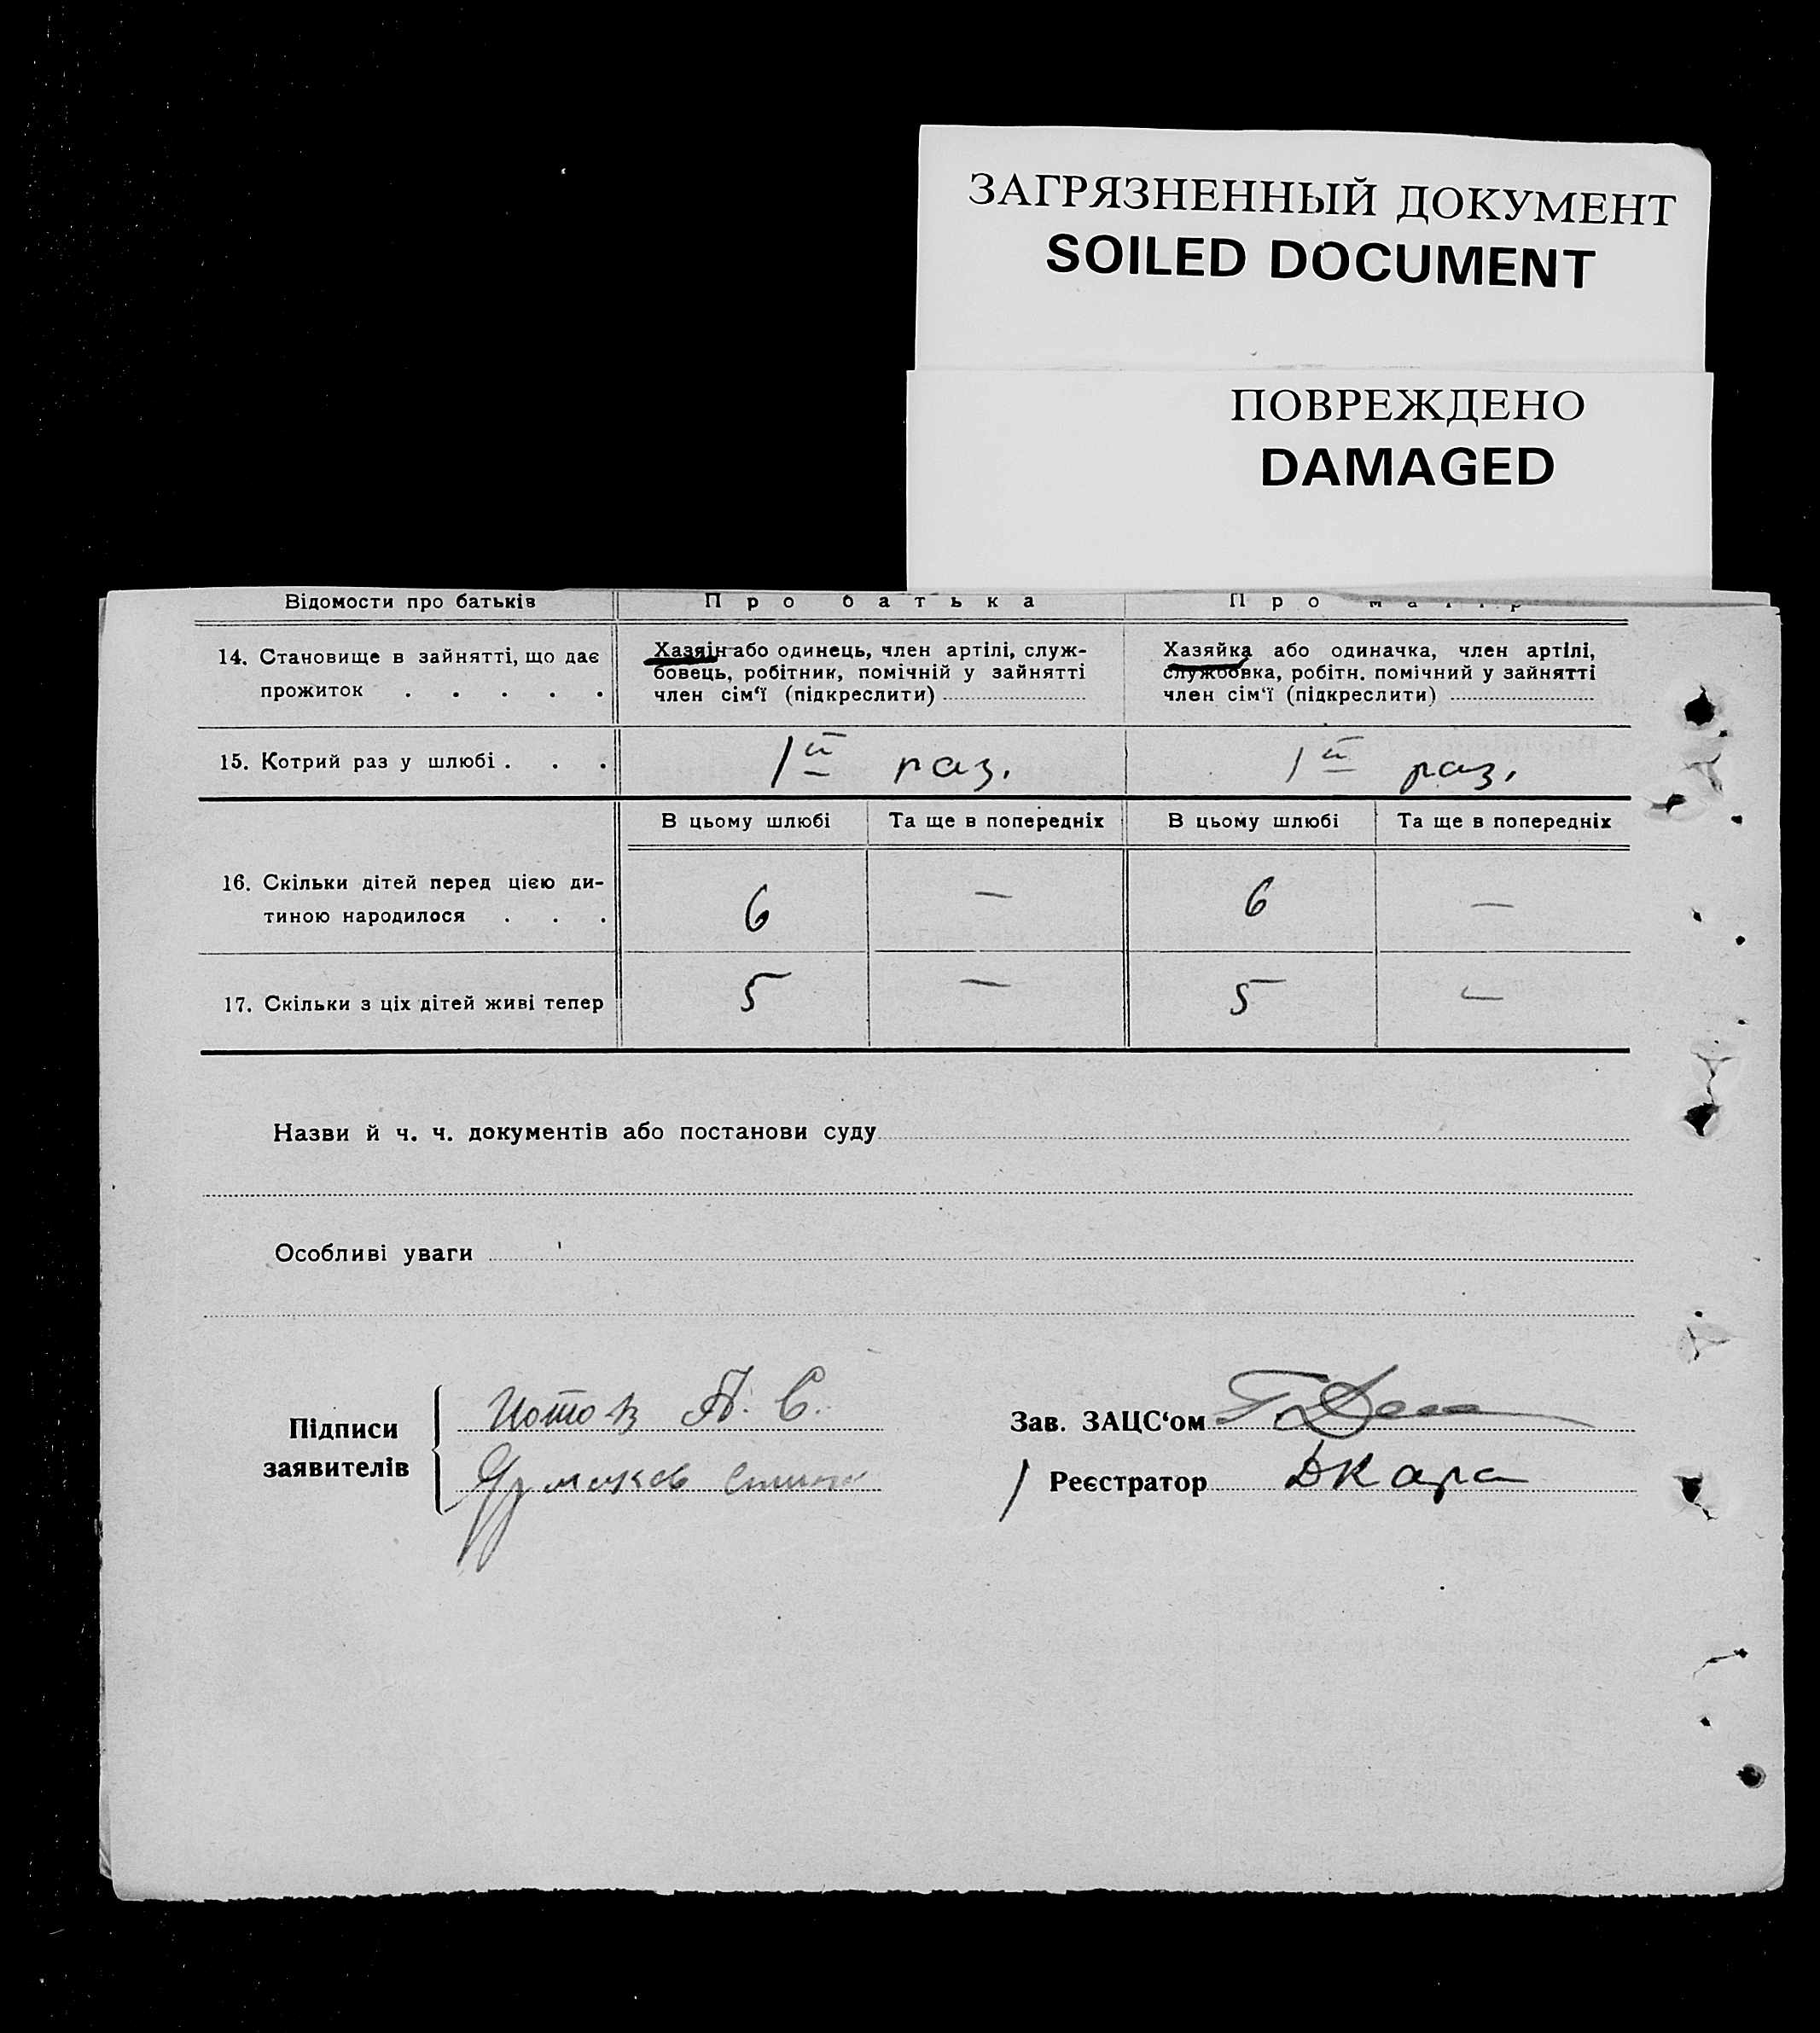 ЗАГРЯЗНЕННЫЙ ДОКУМЕНТ
SOILED DOCUMENT
ПОВРЕЖДЕНО
DAMAGED
Відомости про батьків
Про батька
Про
14. Становище в зайнятті, що дає
прожиток . . . . .
Хазяїн або одинець, член артілі, служ-
бовець, робітник, помічній у зайнятті
член сім‘ї (підкреслити)
Хазяйка або одиначка, член артілі,
службовка, робітн. помічний у зайнятті
член сім‘ї (підкреслити)
15. Котрий раз у шлюбі . . .
1й раз.
1й раз.
В цьому шлюбі
Та ще в попередніх
В цьому шлюбі
Та ще в попередніх
16. Скільки дітей перед цією ди-
тиною народилося . . .
6
—
6
—
17. Скільки з ціх дітей живі тепер
5
—
5
—
Назви й ч. ч. документів або постанови суду
Особливі уваги
Підписи
заявителів
А. С.
Зав. ЗАЦС‘ом
Реєстратор
ДКара